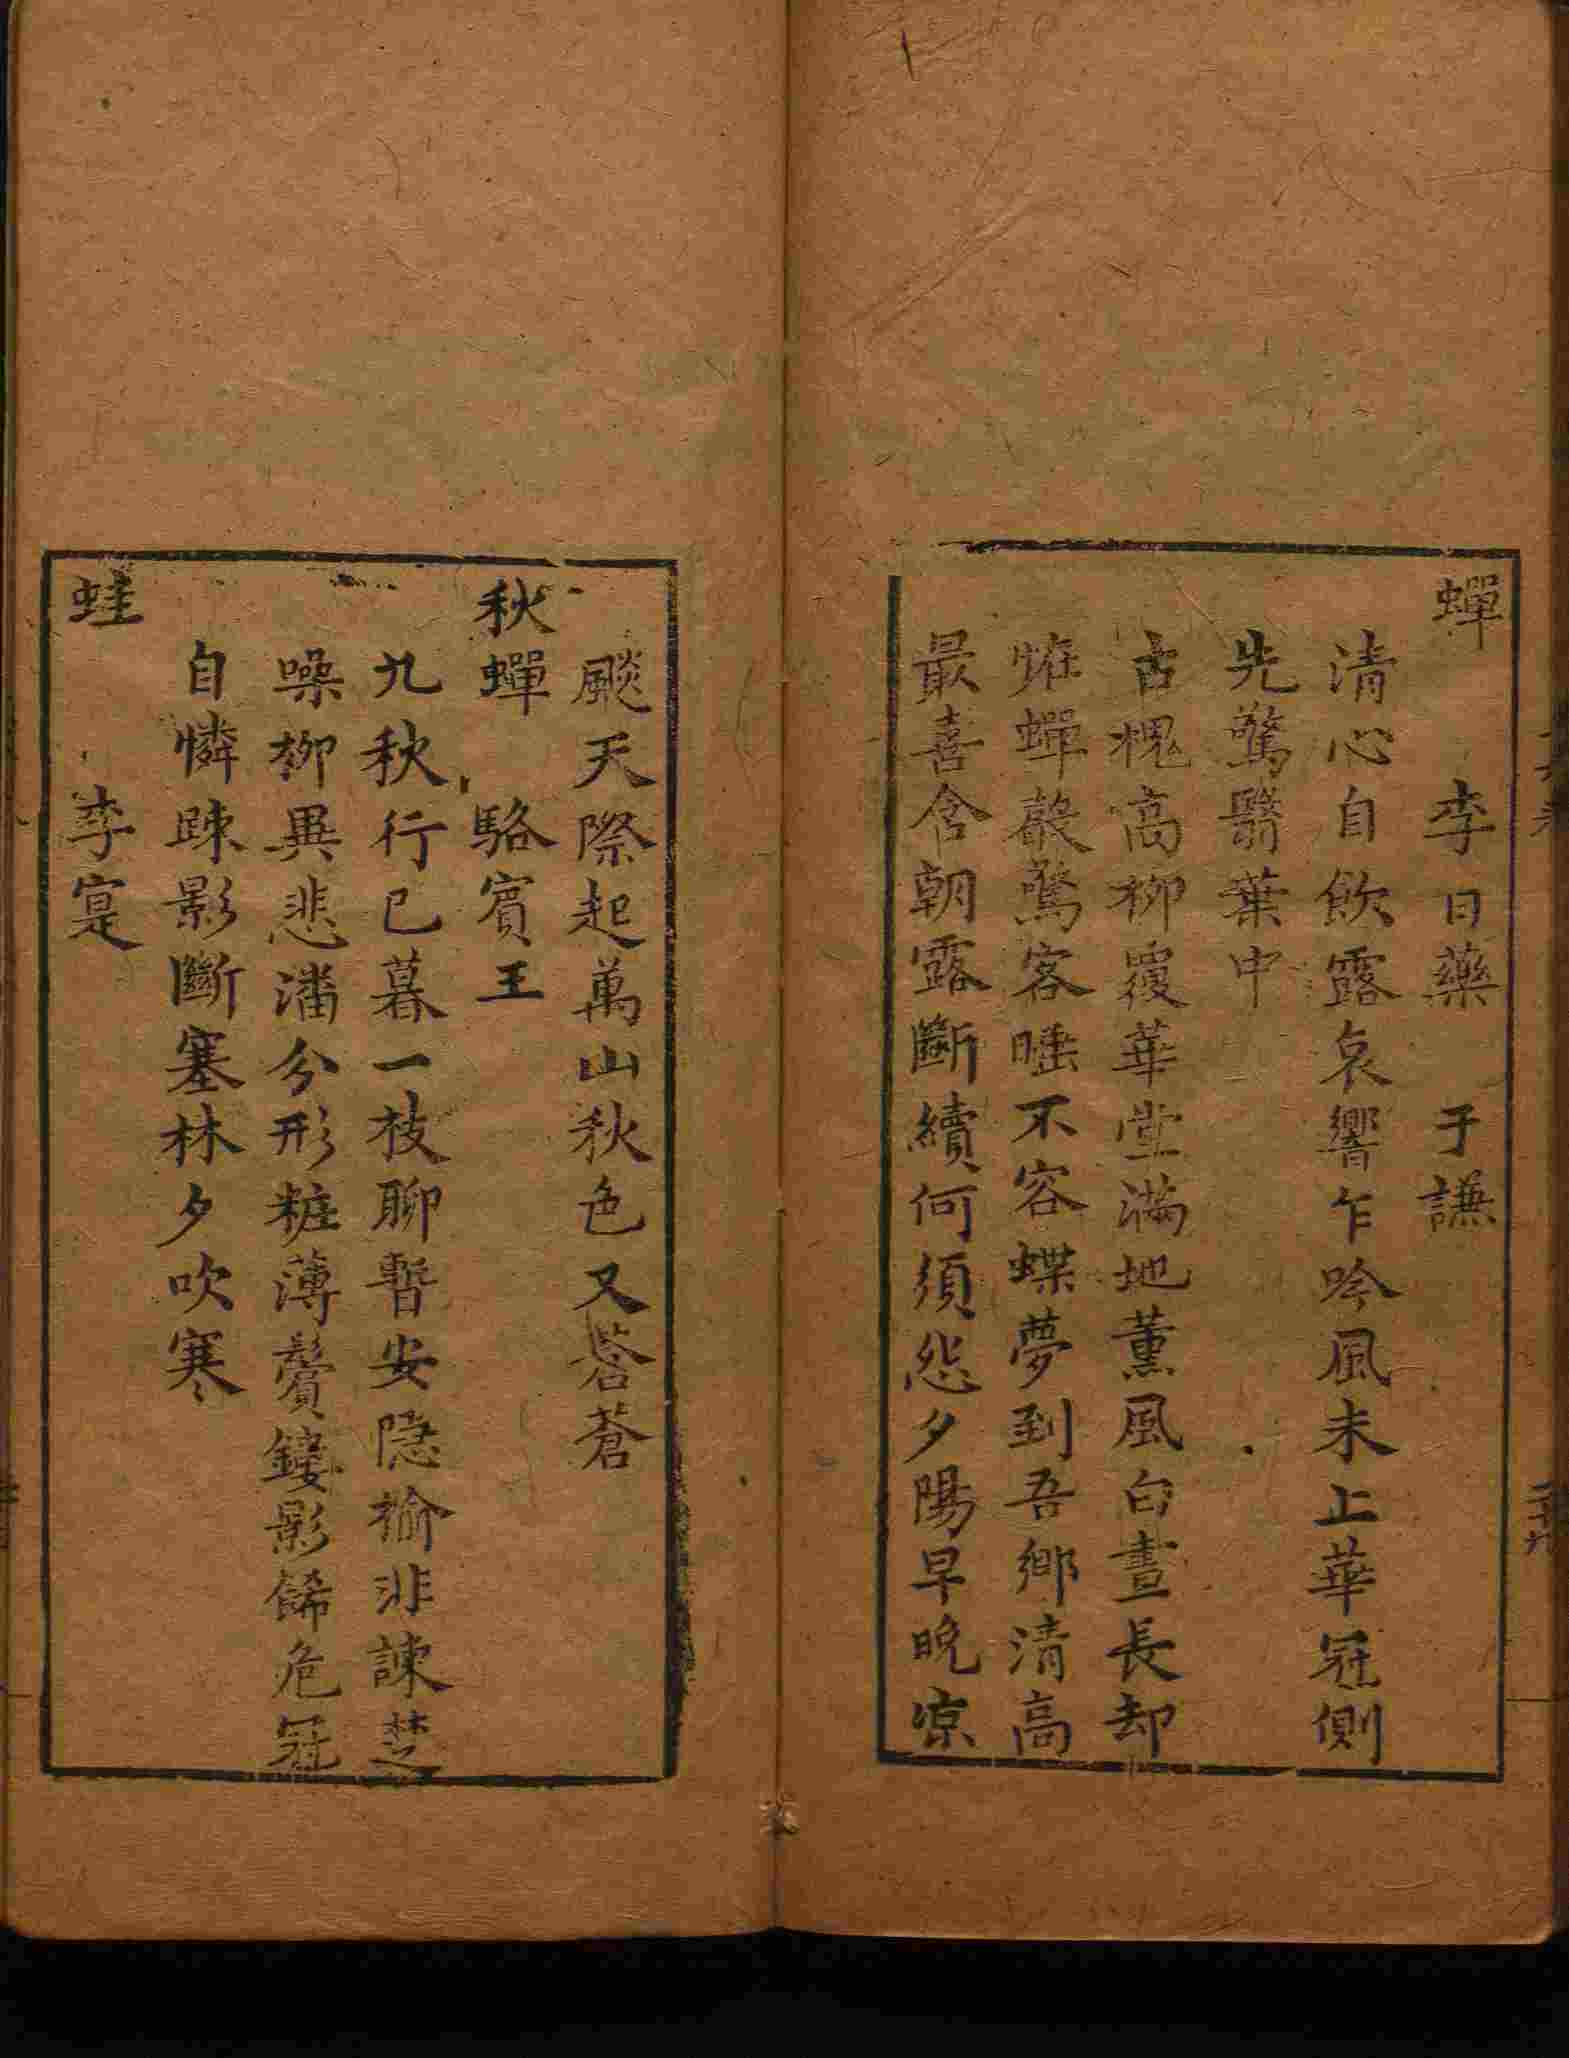 蟬 李日藥 于謙
清心自飲露哀響乍吟風未上華冠側
先驚翳葉中
古槐高柳覆華堂滿地薰風白晝長却
惟蟬聲驚客睡不容蝶夢到吾鄉清高
最喜含朝露斷續何須怨夕陽早晚涼
颷天際起萬山秋色又蒼蒼
秋蟬 駱賓王
九秋行已暮一枝聊暫安隱榆非諫楚
噪柳異悲潘分形粧薄鬢鏤影餙危冠
自憐踈影斷塞林夕吹寒
蛙 李寔